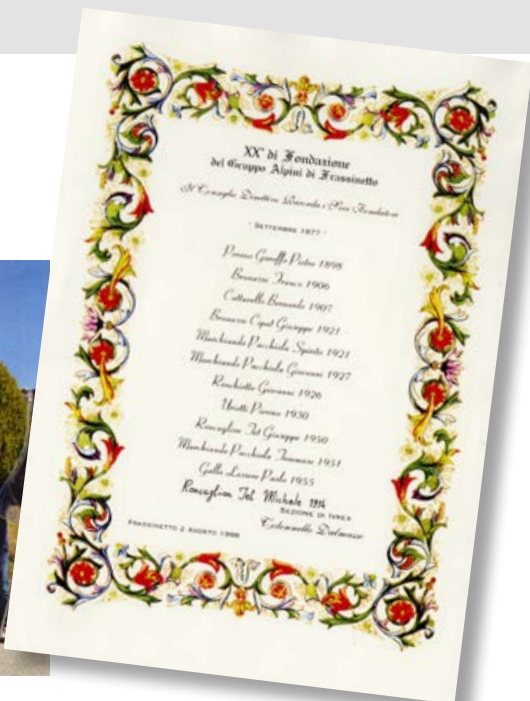 XX° di Fondazione
del Gruppo Alpini di Frassinetto
Il Consiglio Direttivo Ricorda i Soci Fondatori
- SETTEMBRE 1977 -
Perono Garoffo Pietro 1898
Bonazzo Franco 1906
Cattarello Bernardo 1907
Giuseppe 1921
Marchiando Pacchiola Spirito 1921
Marchiando Pacchiola Giovanni 1927
Ronchietto Giovanni 1926
Uniotti Pierino 1930
Roncaglion Tet Giuseppe 1950
Marchiando Pacchiola Tommaso 1951
Gallo Lassere Paolo 1955
Roncaglion Tet Michele 1914
SEZIONE DI IVREA
FRASSINETTO 2 AGOSTO 1998
Colonnello Dalmasso